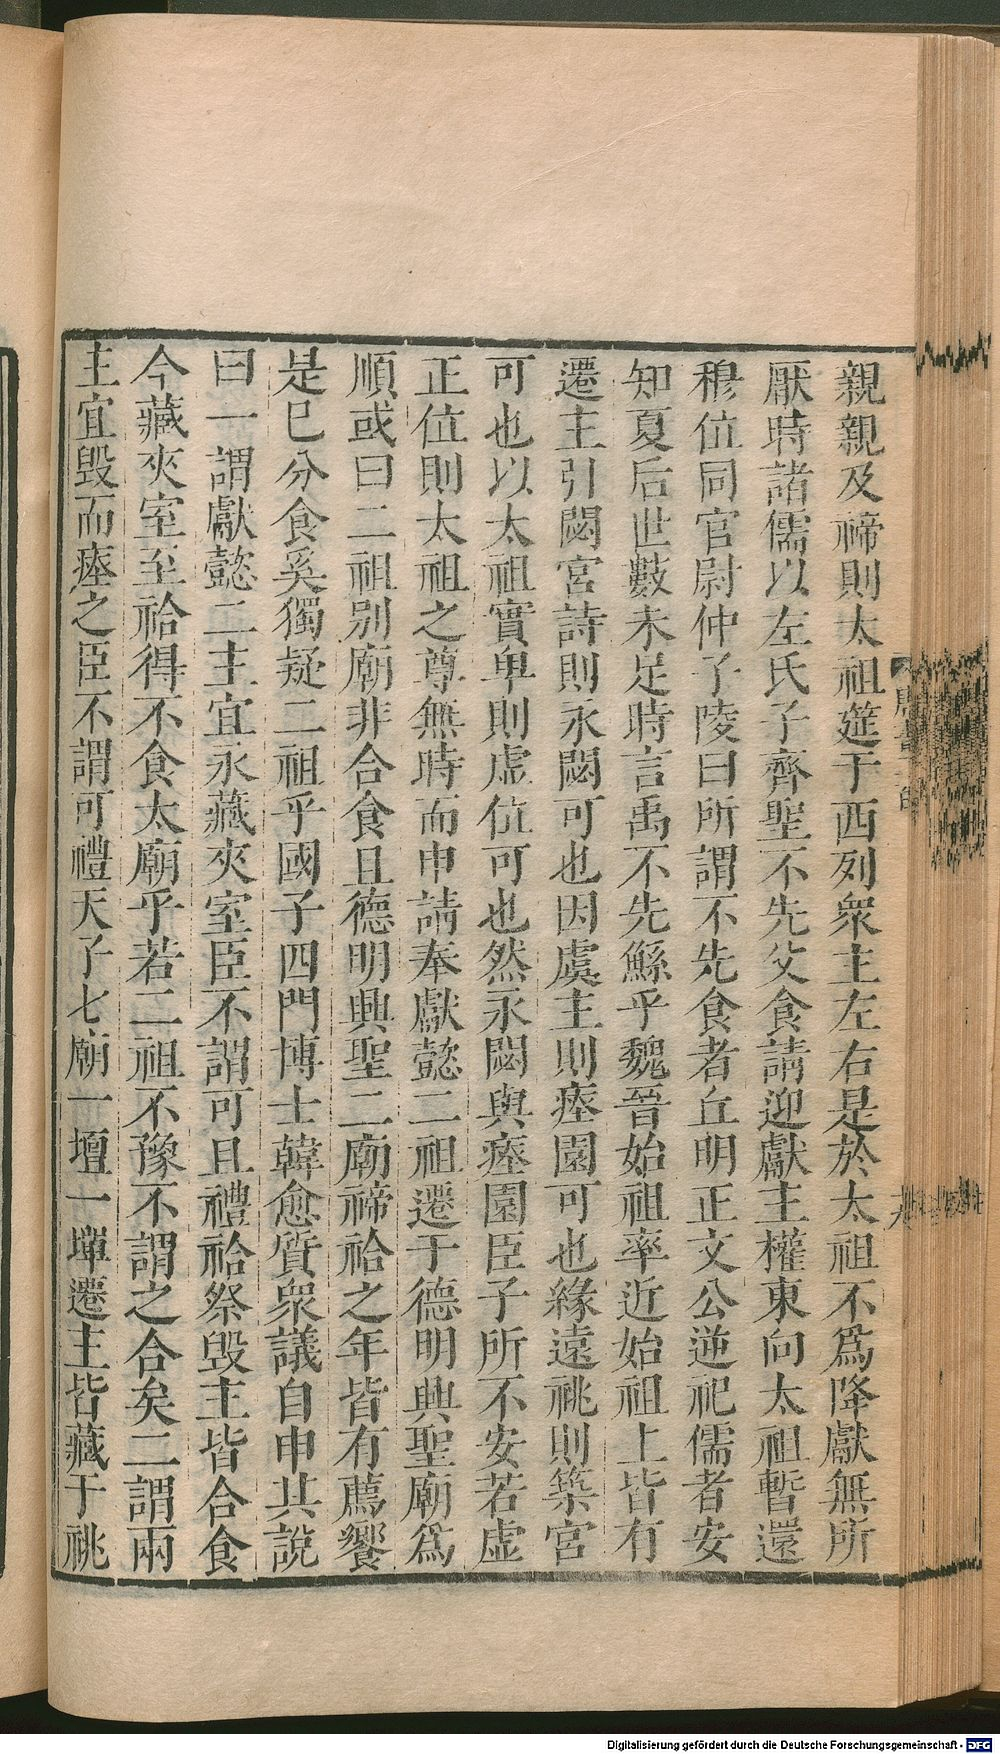 親親及禘則太祖筵于西列衆主左右是於太祖不爲降獻無所
厭時諸儒以左氏子齊聖不先父食請迎獻主權東向太祖暫還
穆位同官尉仲子陵曰所謂不先食者丘明正文公逆祀儒者安
知夏后世數未足時言禹不先鯀乎魏晉始祖率近始祖上皆有
遷主引閟宮詩則永閟可也因虞主則瘞園可也緣遠祧則築宮
可也以太祖實卑則虛位可也然永閟與瘞園臣子所不安若虛
正位則太祖之尊無時而申請奉獻懿二祖遷于德明興聖廟爲
順或曰二祖别廟非合食且德明興聖二廟禘祫之年皆有薦饗
是已分食奚獨疑二祖乎國子四門博士韓愈質衆議自申其說
曰一謂獻懿二主宜永藏夾室臣不謂可且禮祫祭毁主皆合食
今藏夾室至祫得不食太廟乎若二祖不豫不謂之合矣二謂兩
主宜毁而瘞之臣不謂可禮天子七廟一壇一墠遷主皆藏于祧
Digitalisierung gefördert durch die Deutsche Forschungsgemeinschaft - DFG